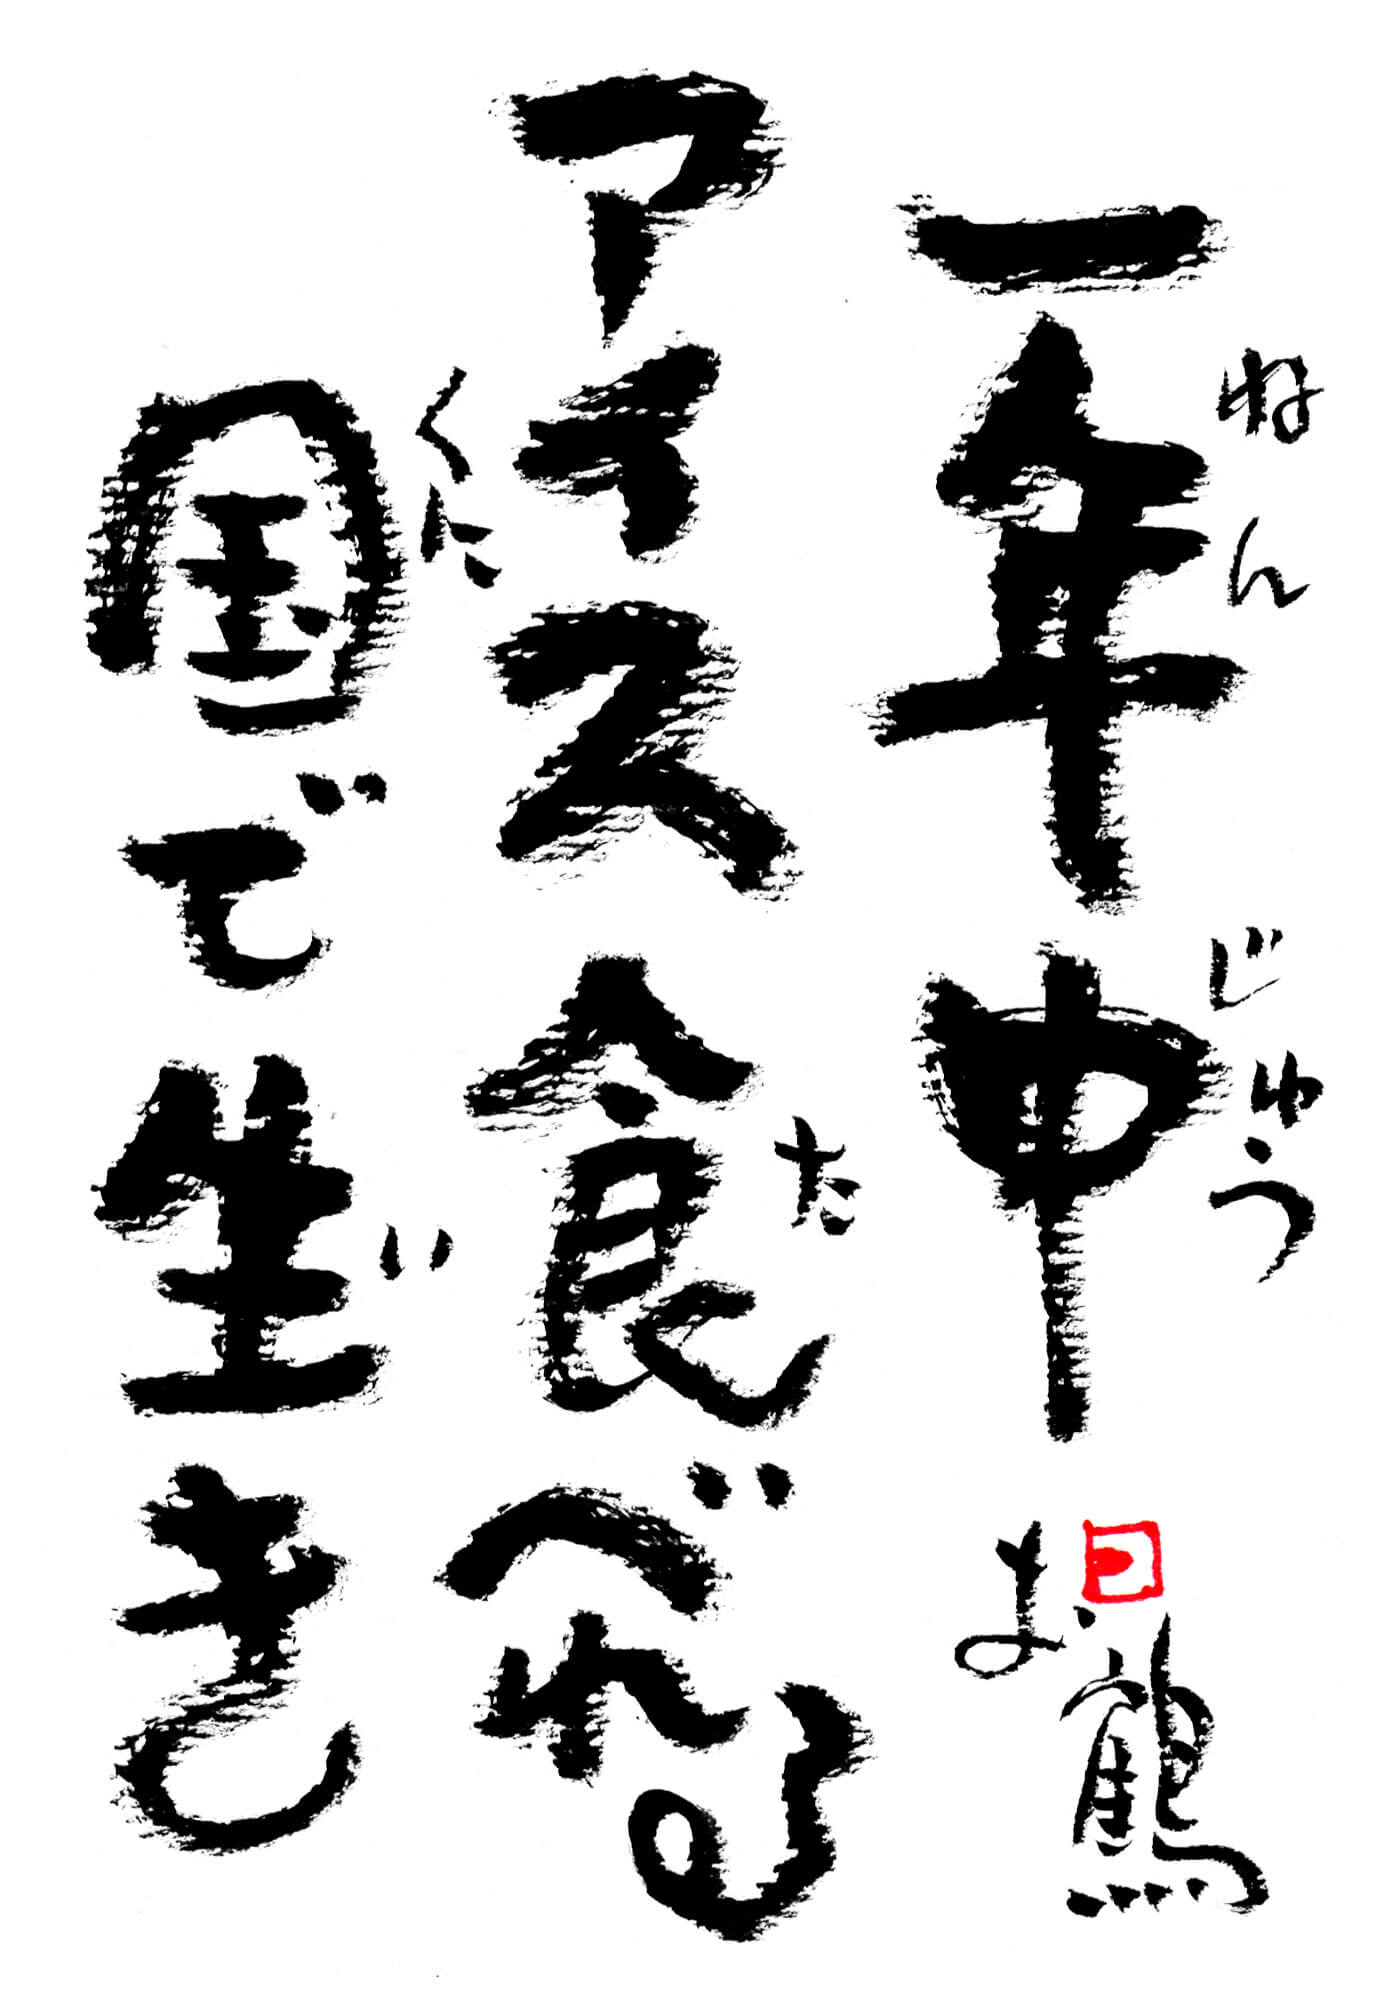 一年中
ねんじゅう
アイス食べれる
た
国で生き
くに
い
お鶴